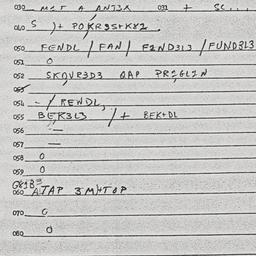 030 MET A ANT3X 032 + SC...
040 S )+ POKR3S+K82
050 FENDL / FAN / F2ND3L3 / FUND3L3
051 O
052 SKOVR3D3 QAP PR2GL2N
053
054 - / RENDL,
055 BEK3L3 / + BEK+DL
056 —
057 —
058 O
059 O
060 ATAP 3M)+TOP
070 O
080 O